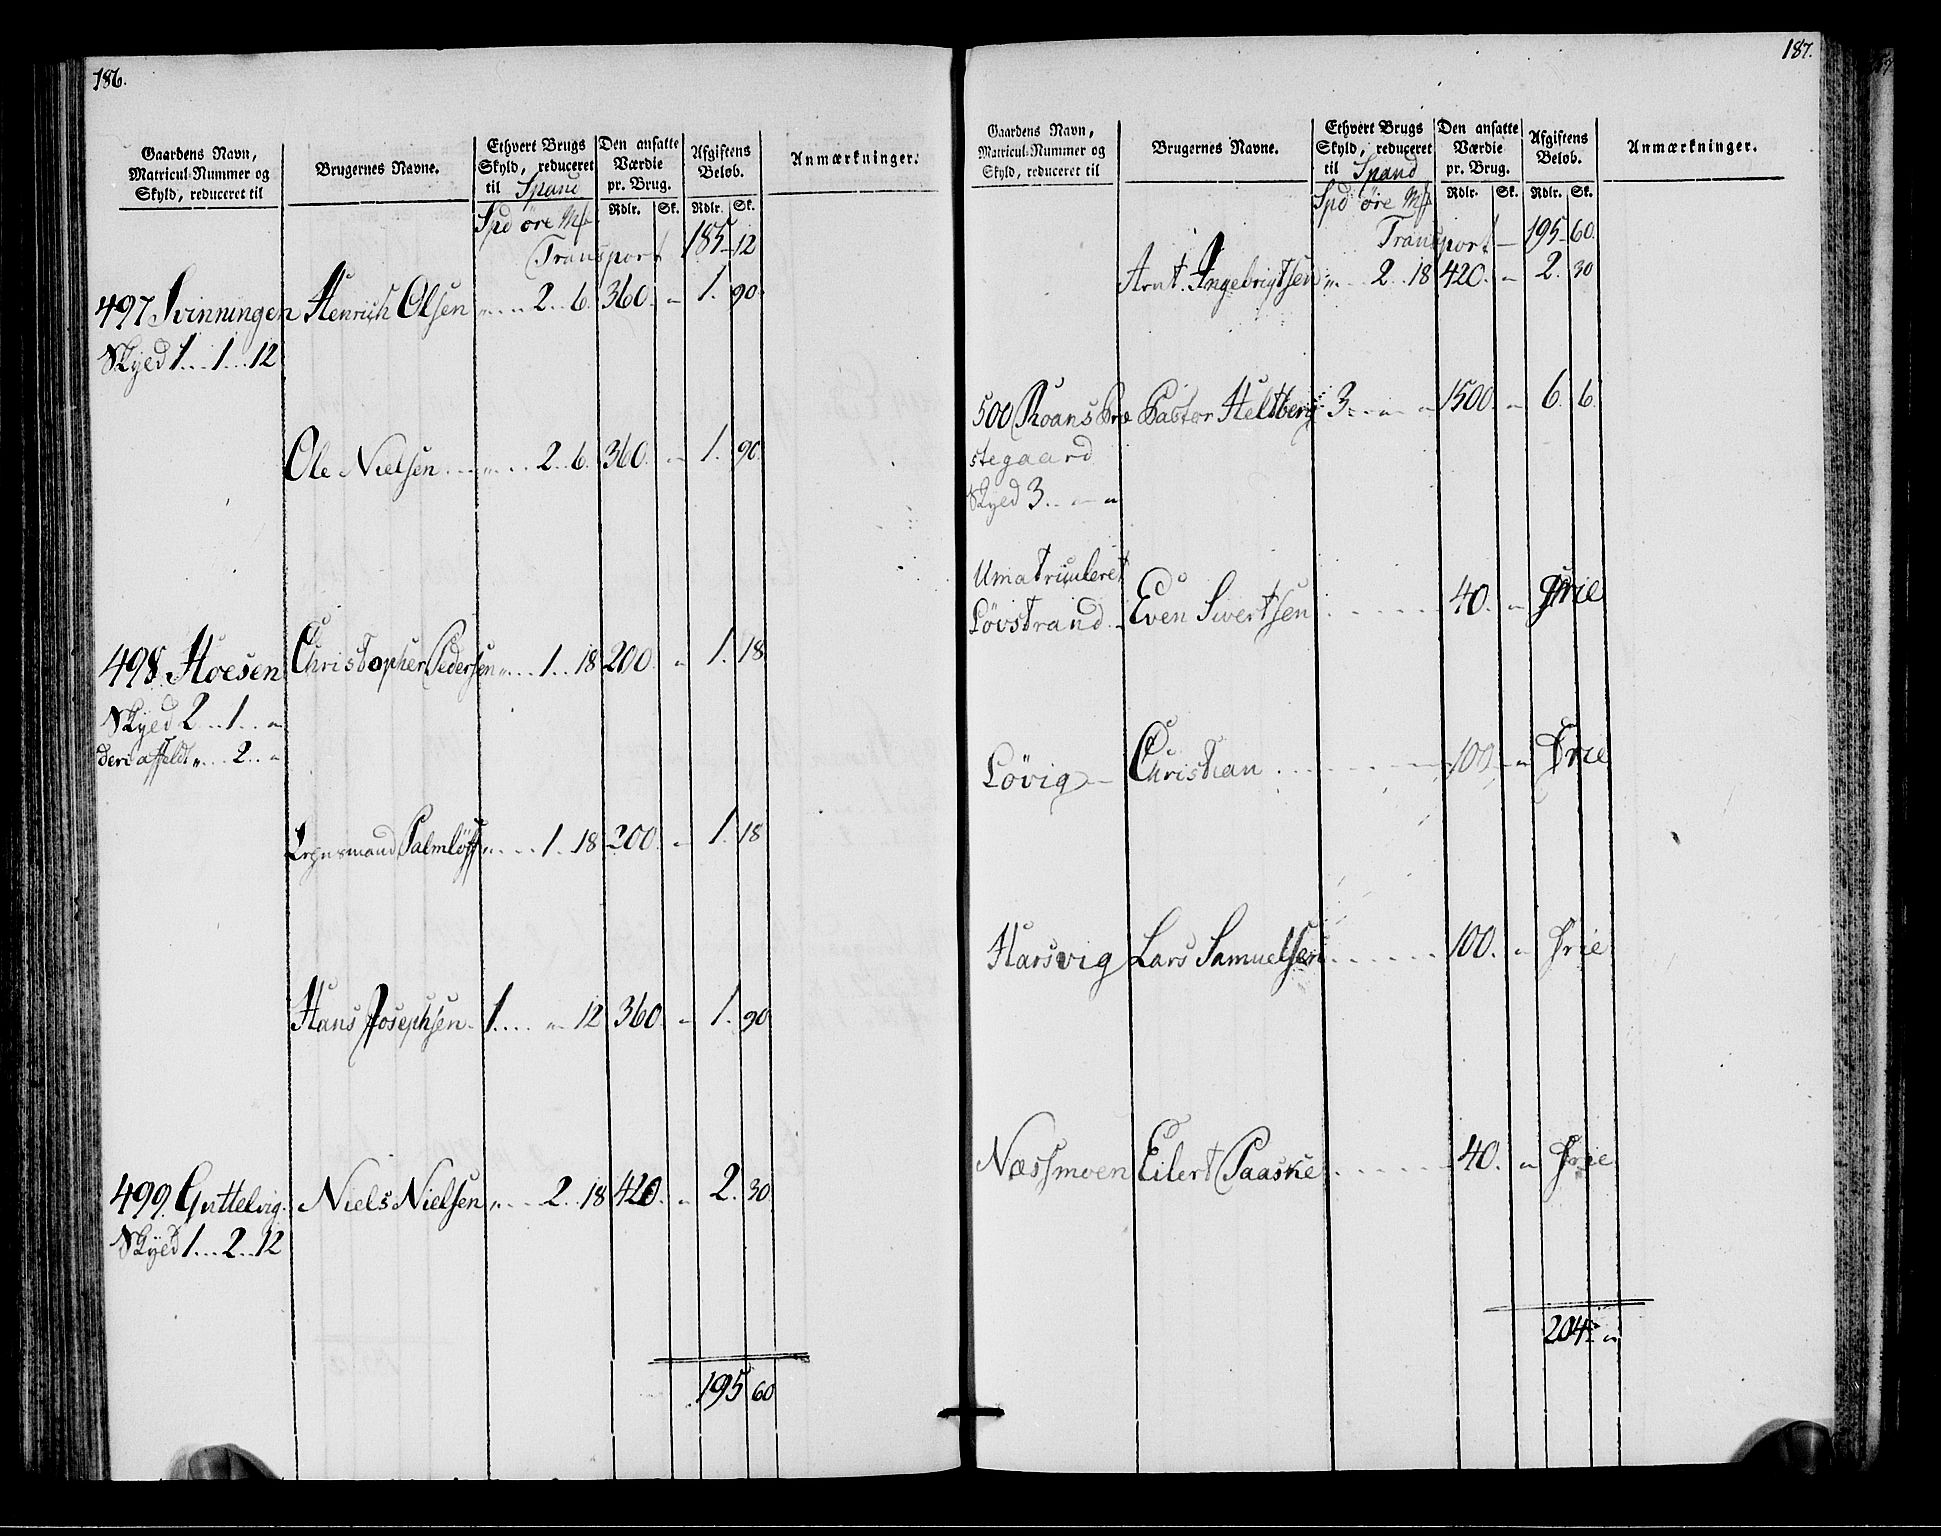 186.
Gaardens Navn, Matricul-Nummer og Skyld, reduceret til
Brugernes Navne.
Ethvert Brugs Skyld, reduceret til Spand
Den ansatte Værdie pr. Brug.
Afgiftens Beløb.
Anmærkninger.
Spd öre Mk Rdlr. Sk. Rdlr. Sk.
Transport 185 - 12
497 Svinningen Henrich Olsen „ 2 .. 6. 360. „ 1. 90.
Skyed 1 ... 1 ... 12
Ole Nielsen „ 2 .. 6. 360. „ 1. 90.
498. Hoesen Christopher Pedersen „ 1 .. 18 200. „ 1. 18
Skyed 2 ... 1 ... „
deri affeldt „ ... 2 .. „
Palmlöff „ 1 .. 18 200. „ 1. 18
Hans Josephsen 1 .... „ 12 360. „ 1. 90
499. Guttelvig. Niels Nielsen „ 2 .. 18 420. „ 2. 30.
Skyed 1 ... 2 .. 12
195 60
187.
Gaardens Navn, Matricul-Nummer og Skyld, reduceret til
Brugernes Navne.
Ethvert Brugs Skyld, reduceret til Spand
Den ansatte Værdie pr. Brug.
Afgiftens Beløb.
Anmærkninger.
Spd öre Mk Rdlr. Sk. Rdlr. Sk.
Transport - 195 - 60.
Arnt Ingebrigtsen „ 2 .. 18 420. „ 2. 30
500 Roans Præ Pastor Heltberg 3 .. „ „ 1500. „ 6. 6.
stegaard
Skyed 3 .. „ „
Umatriculeret
Lövstrand. Even Sivertsen 40. „ Frie
Lövig Christian 100. „ Frie
Harsvig Lars Samuelsen 100. „ Frie
Næssmoen Eilert Paaske 40. „ Frie
204 „